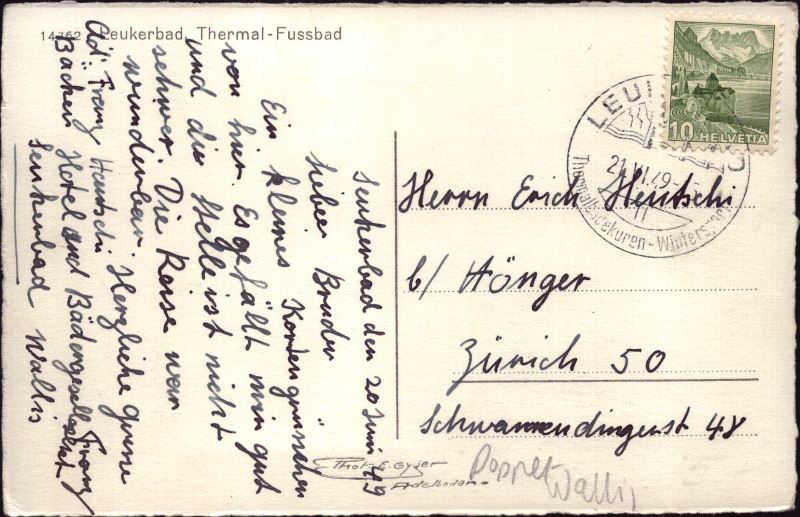 14762 Leukerbad, Thermal-Fussbad
Leukerbad den 20 Juni 49
Lieber Bruder
Ein kleines Kartengrüsschen
von hier. Es gefällt mir gut
und die Stelle ist nicht
schwer. Die Reise war
wunderbar. Herzliche Grüsse
Franz
Adr. Franz Heutschi
Bäckerei Hotel und Bädergesellschaft
Leukerbad Wallis
HELVETIA
10
LEUK
21.VI.49
Thermalbadekuren - Wintersport
Herrn Erich Heutschi
b/ Hönger
Zürich 50
Schwammendingerst 48
Phot. E. Gyger
Adelboden.
Doppel
Wallis